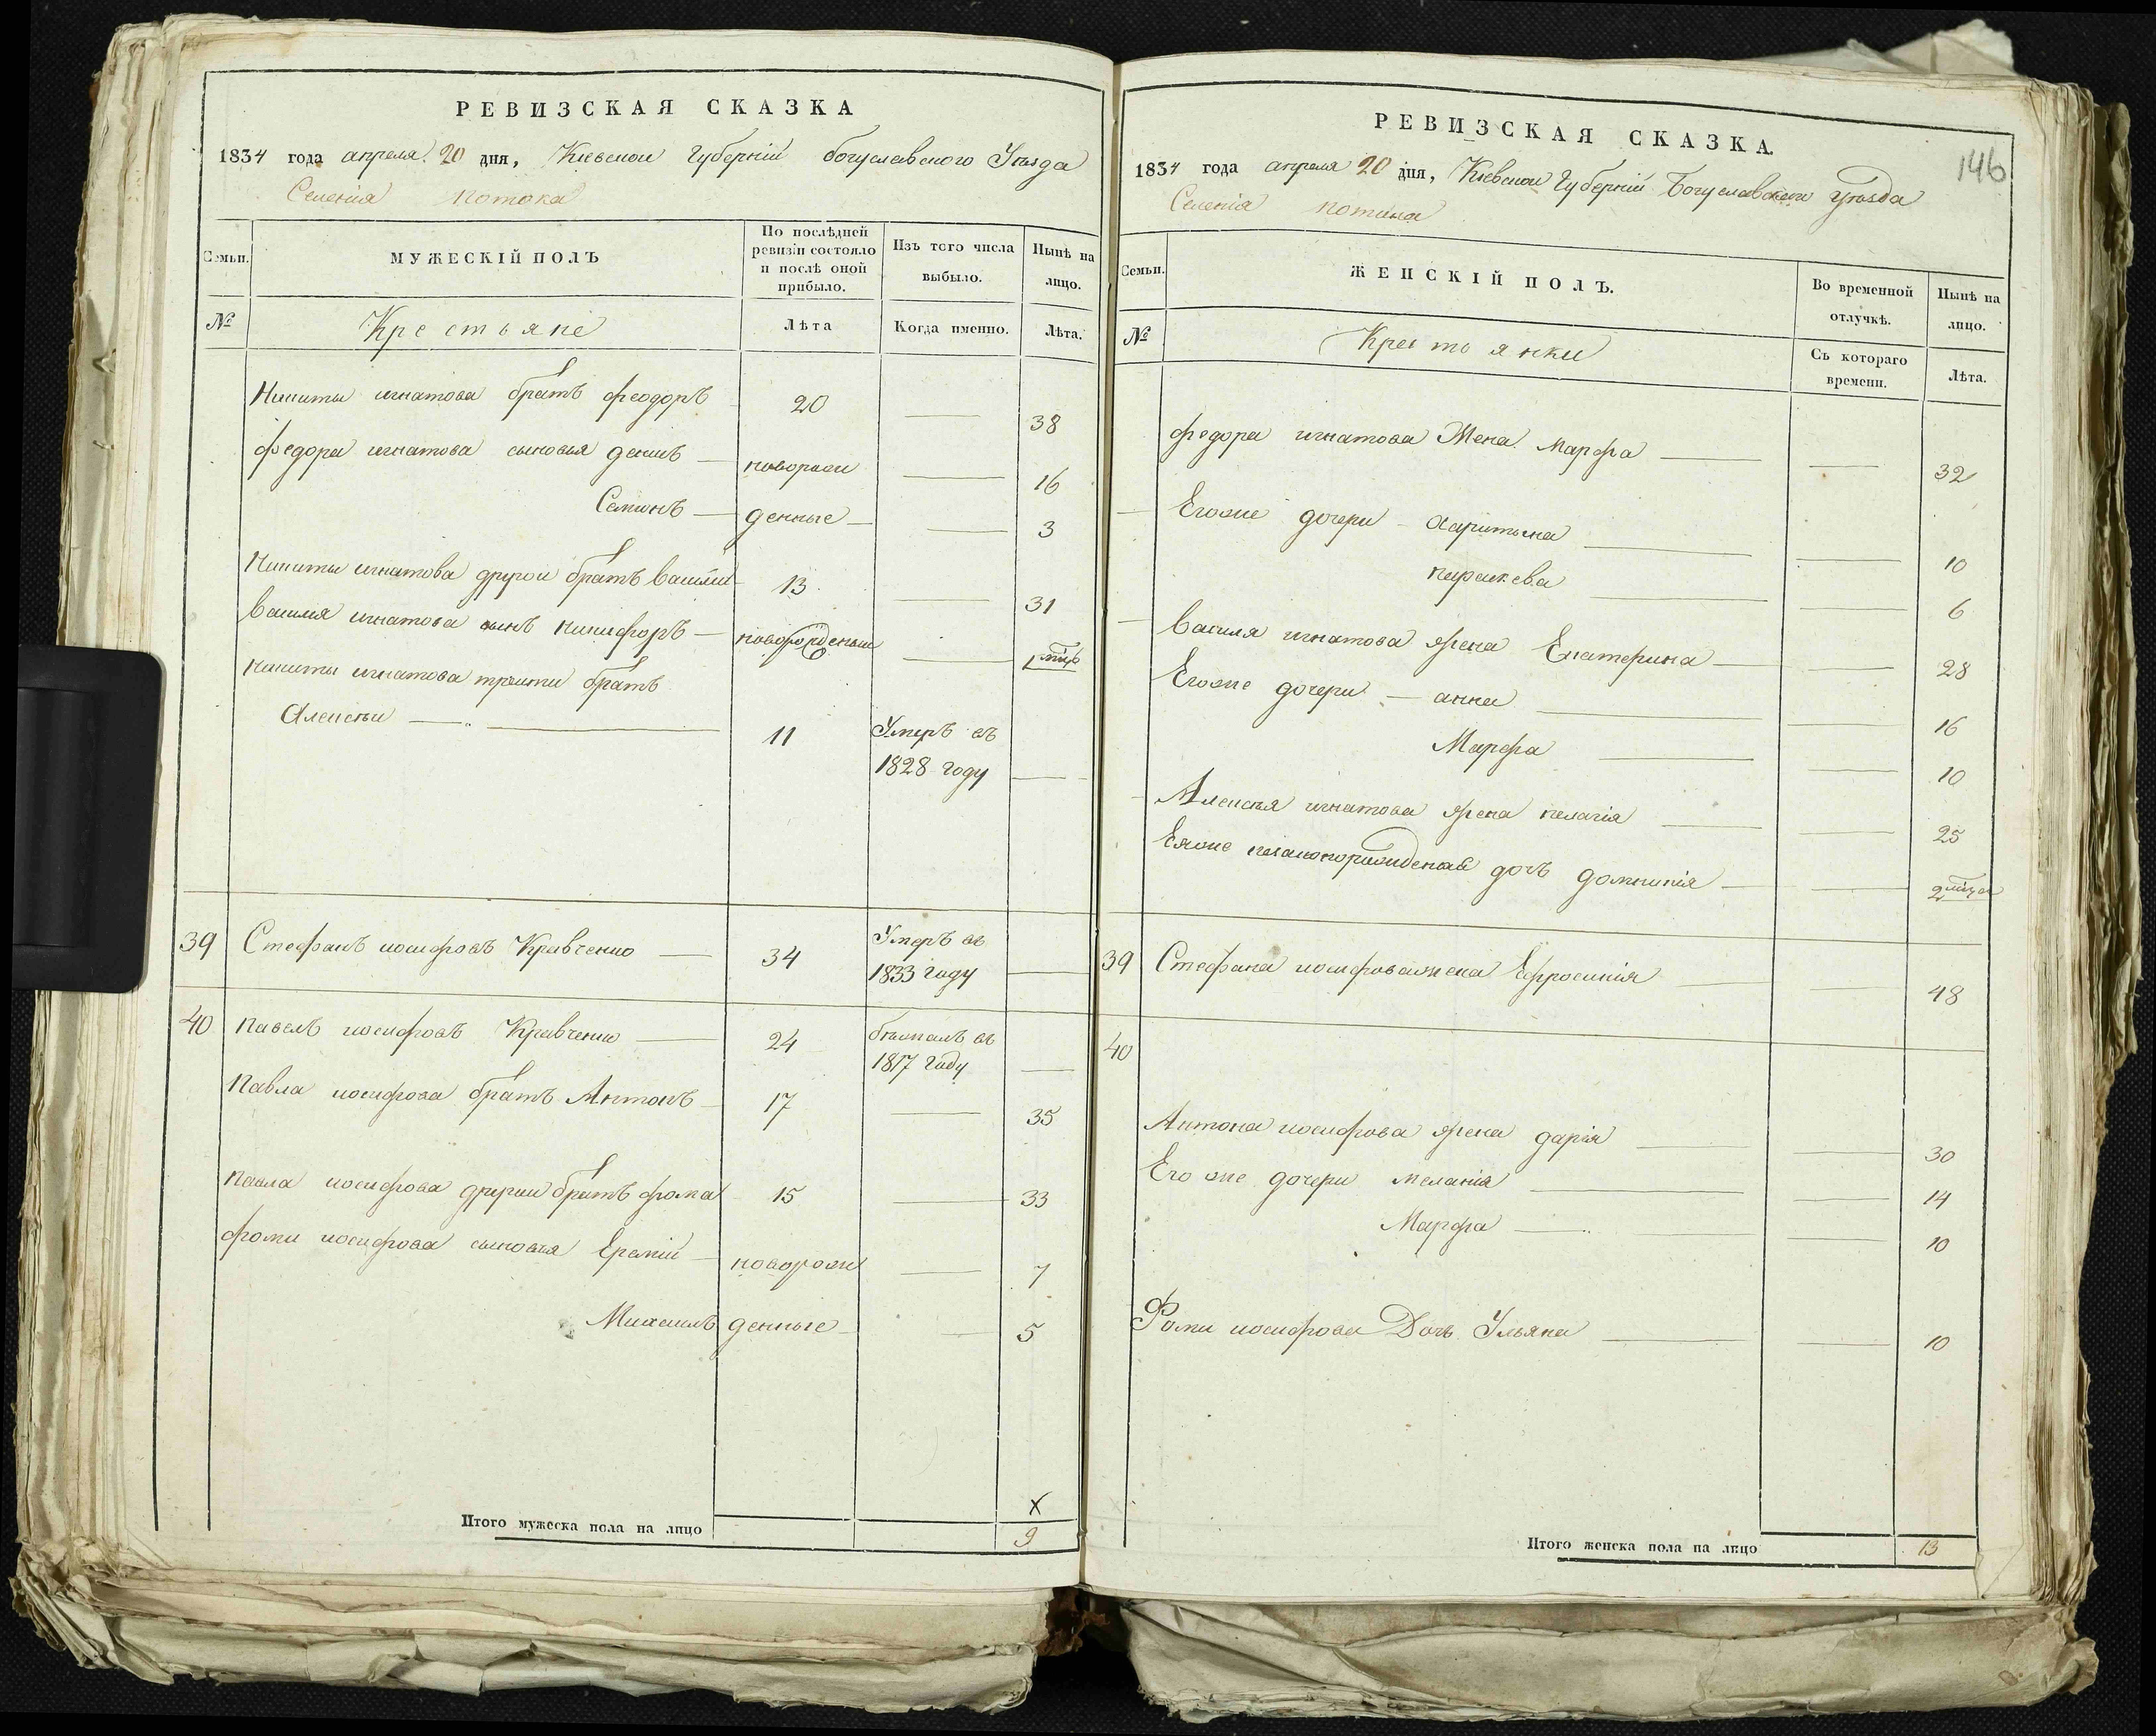 РЕВИЗСКАЯ СКАЗКА
1834 года апреля 20 дня, Киевской Губернии богуславского Уезда
Селения потока
Семьи.
МУЖЕСКІЙ ПОЛЪ
По послѣдней ревизіи состояло и послѣ оной прибыло.
Изъ того числа выбыло.
Нынѣ на лицо.
№
Крестьяне
Лѣта
Когда именно.
Лѣта.
Никиты игнатова братъ феодоръ 20 — 38
федора игнатова сыновья — новорож — 16
Семионъ — денные — — 3
Никиты игнатова другой братъ василий 13 — 31
Василия игнатова сынъ никифоръ — новорожденный — 1 мць
никиты игнатова третий братъ
Алексей — 11 Умеръ въ
1828 году —
39 Стефанъ иосифовъ Кравченко — 34 Умеръ въ
1833 году —
40 павелъ иосифовъ Кравченко — 24 бежалъ въ
1817 году —
Павла иосифова братъ Антонъ — 17 — 35
павла иосифова другий братъ фома 15 — 33
фоми иосифова сыновья Еремий — новорож — 7
Михаилъ денные — — 5
X
Итого мужеска пола на лицо 9
146
РЕВИЗСКАЯ СКАЗКА.
1834 года апреля 20 дня, Киевской Губернии Богуславского уезда
Селенія потока
Семьи.
ЖЕНСКІЙ ПОЛЪ.
Во временной отлучкѣ.
Нынѣ на лицо.
№
Крестьянки
Съ котораго времени.
Лѣта.
федора игнатова Жена Марфа — — 32
Егоже дочери — харитына — — 10
параскева — — 6
Василя игнатова жена Екатерина — — 28
Егоже дочери — анна — — 16
Марфа — — 10
Алексея игнатова жена пелагія — — 25
Еяже дочь домникія — — 2 мца
39 Стефана иосифова жена Ефросинія — — 48
40
Антона иосифова жена дарія — — 30
Его же дочери меланія — — 14
Марфа — — 10
Фоми иосифова Дочь Ульяна — — 10
Итого женска пола на лицо 13